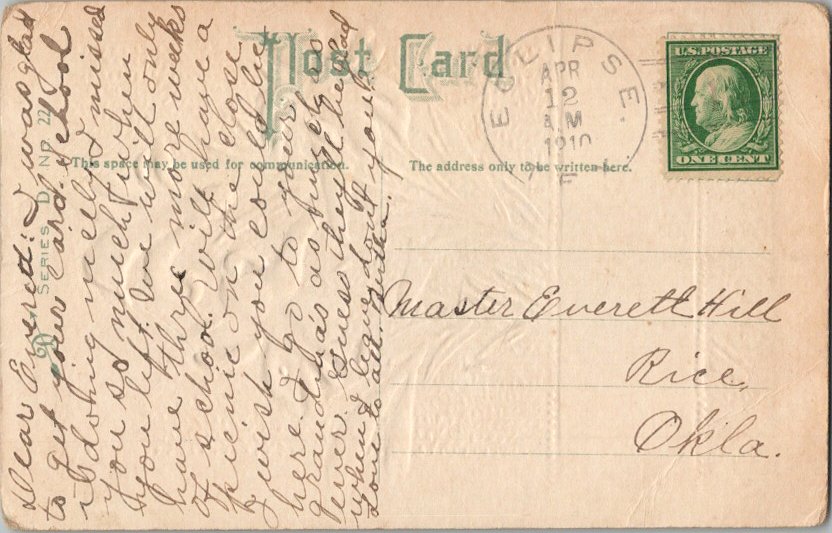 Post Card
This space may be used for communication.
The address only to be written here.
SERIES D NO. 22
ECLIPSE.
APR
12
A.M.
1910
U.S. POSTAGE
ONE CENT
Master Everett Hill
Rice,
Okla.
Dear Everett: I was glad
to get your card. School
is doing nicely. I missed
you so much when
you left. We will only
have three more weeks
of school. Will have a
picnic on the close
I wish you could be
here. I go to your
grandma's as hungry as
ever. Guess they'll be glad
when I leave don't you?
Love to all.